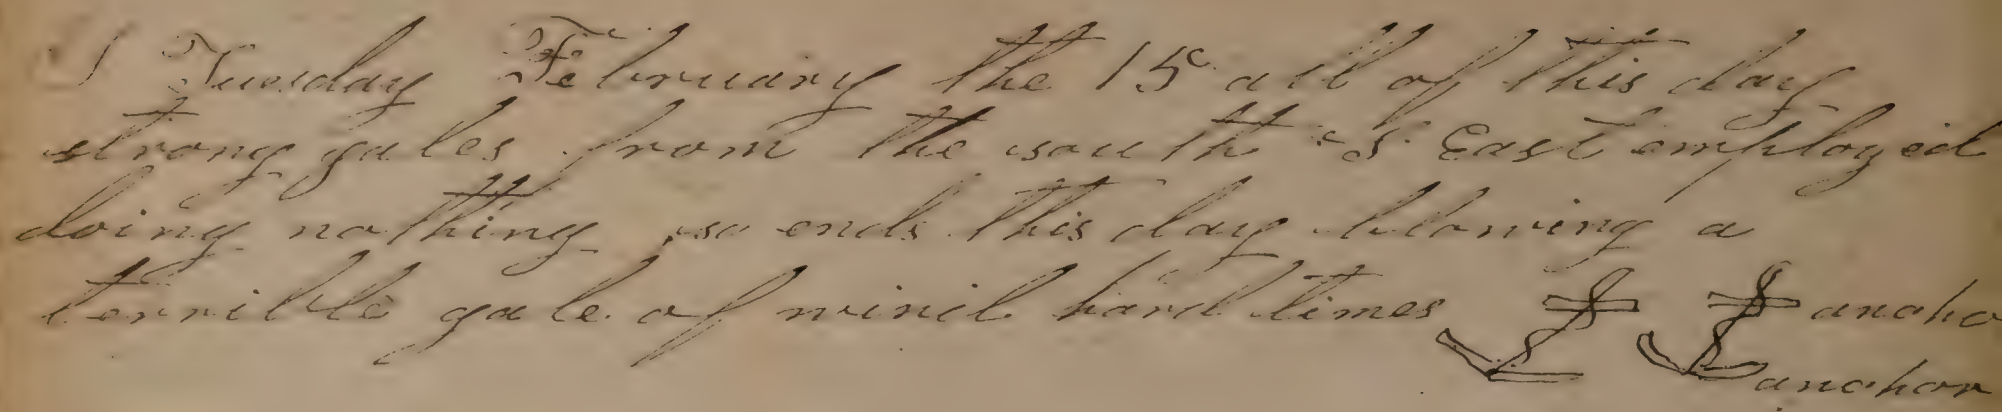 Tuesday February the 15 all of this day
strong gales from the south & S East employed
doing nothing so ends this day blowing a
terrible gale of wind hard times ancho
anchor